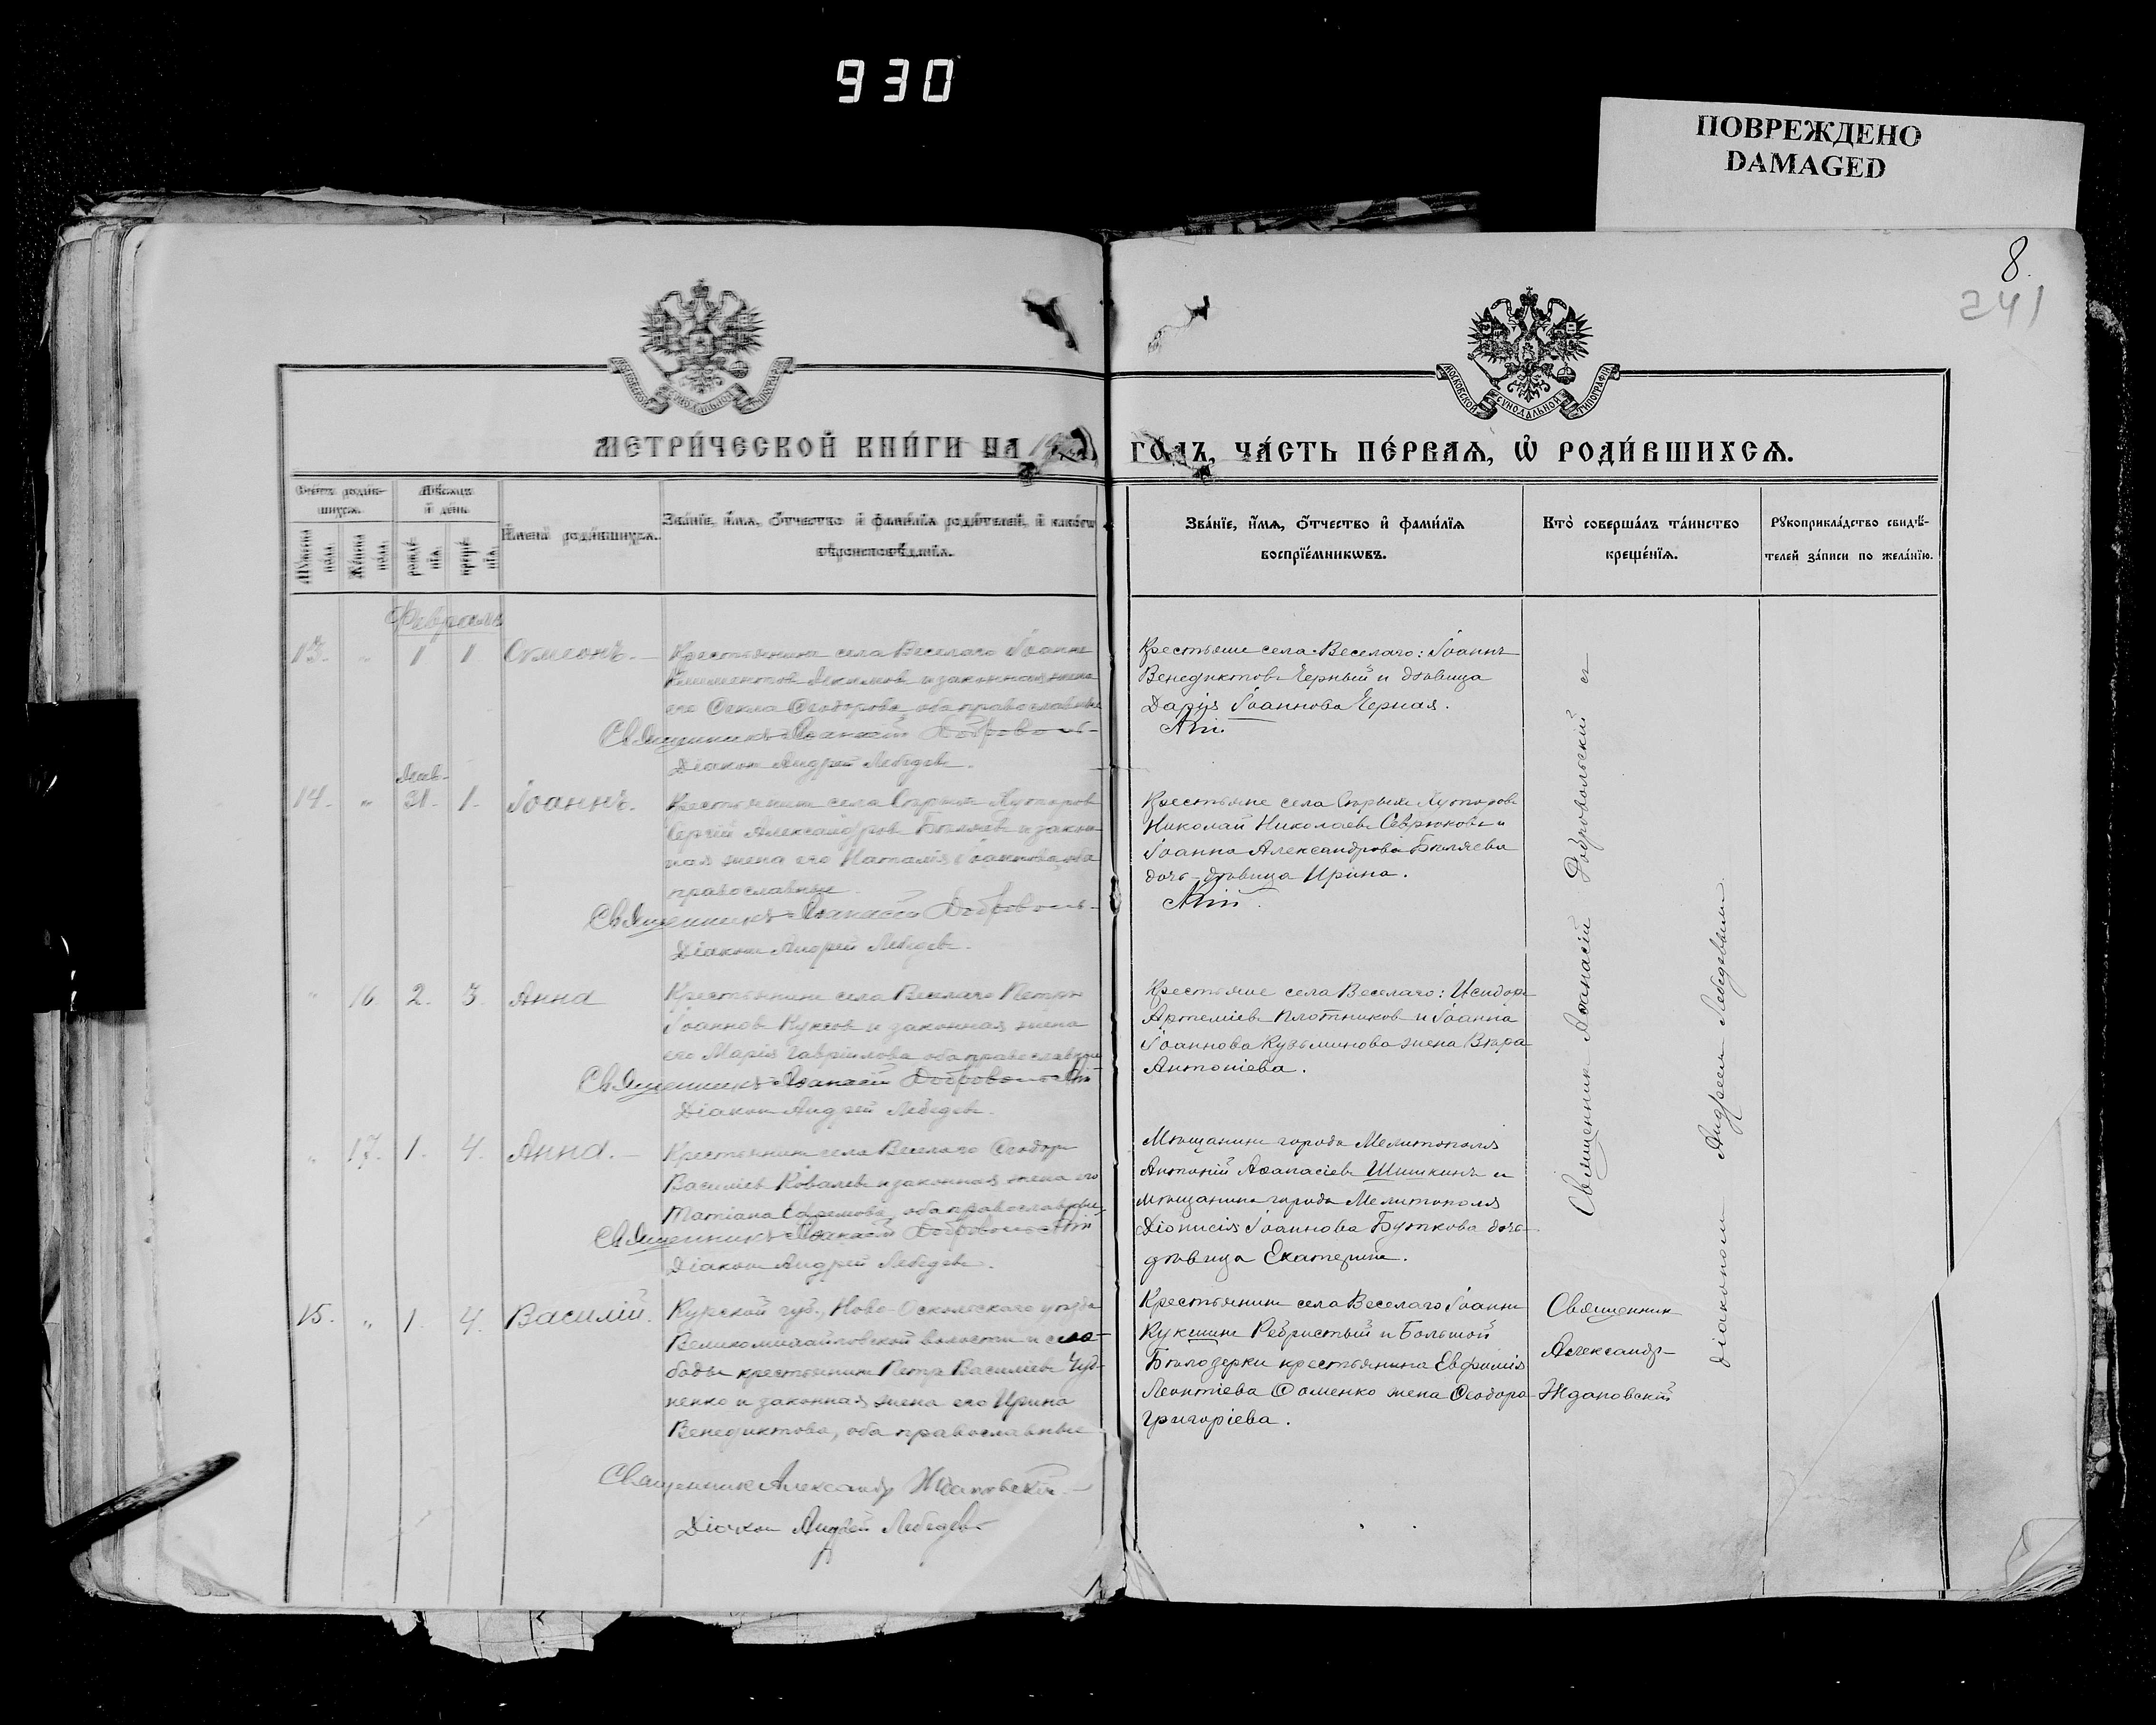 930
ПОВРЕЖДЕНО
DAMAGED
8.
241
МОСКОВСКОЙ СУНОДАЛЬНОЙ ТИПОГРАФІИ
МЕТРИ́ЧЕСКОЙ КНИ́ГИ НА
ГО́ДЪ, ЧА́СТЬ ПЕ́РВАЯ, Ѡ РОДИ́ВШИХСЯ.
Сче́тъ роди́в-
шихся.
Мѣ́сяцъ
и де́нь.
Му́жеска
пола.
Же́нска
пола.
рожде́-
нія.
креще́-
нія.
Имена̀ роди́вшихся.
Зва́ніе, и́мя, о́тчество и фами́лія роди́телей, и како́гѡ
вѣроисповѣ́данія.
Зва́ніе, и́мя, о́тчество и фами́лія
воспріе́мникѡвъ.
Кто̀ соверша́лъ та́инство
креще́нія.
Рꙋкоприкла́дство свидѣ́-
телей за́писи по жела́нію.
Февраль
13. " 1 1 Сѵмеонъ.
Крестьянинъ села Веселаго Іоаннъ
Климентов Акимов и законная жена
его Ѳекла Ѳеодорова, оба православные
Священникъ Аѳанасій Добровольс-
Діаконъ Андрей Лебедевъ.
Крестьяне села Веселаго: Іоаннъ
Венедиктовъ Черный и дѣвица
Дарія Іоаннова Черная.
Янв-
14. " 31. 1. Іоаннъ.
Крестьянинъ села
Сергій Александров Бѣляевъ и закон-
ная жена его Наталія Іоаннова, оба
православные.
Священникъ Аѳанасій Добровольс-
Діаконъ Андрей Лебедевъ.
Крестьяне села
Николай Николаевъ Севрюковъ и
Іоанна Александрова Бѣляева
дочь-дѣвица Ирина.
" 16. 2. 3. Анна
Крестьянинъ села Веселаго Петръ
Іоаннов Куксов и законная жена
его Марія Гавріилова, оба православные
Священникъ Аѳанасій Добровольскій
Діаконъ Андрей Лебедевъ.
Крестьяне села Веселаго: Исидоръ
Артеміевъ Плотников и Іоанна
Іоаннова Кузьминова жена Вѣра
Антоніева.
" 17. 1. 4. Анна.
Крестьянинъ села Веселаго Ѳеодоръ
Василіев Ковалевъ и законная жена его
Татіана Ефремова, оба православные
Священникъ Аѳанасій Добровольскій
Діаконъ Андрей Лебедевъ.
Мѣщанинъ города Мелитополя
Антоній Аѳанасіевъ Шишкинъ и
мѣщанина города Мелитополя
Діонисія Іоаннова Буткова дочь-
дѣвица Екатерина.
Священник Аѳанасій Добровольский съ
діакономъ Андреем Лебедевым
15. " 1. 4. Василій.
Курской губ., Ново-Оскольскаго уѣзда
Великомихайловской волости и сло-
боды крестьянинъ Петръ Василіевъ
и законная жена его Ирина
Венедиктова, оба православные
Священник Александр Ждановскій
Діакон Андрей Лебедевъ
Крестьянинъ села Веселаго Іоаннъ
и Большой
Бѣлозерки крестьянина Евфимія
Леонтіева Ѳоменко жена Ѳеодора
Григоріева.
Священник
Александръ
Ждановскій